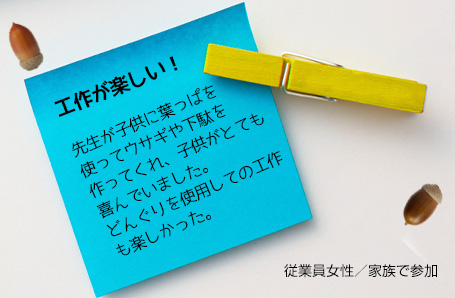 工作が楽しい！
先生が子供に葉っぱを
使ってウサギや下駄を
作ってくれ、子供がとても
喜んでいました。
どんぐりを使用しての工作
も楽しかった。
従業員女性／家族で参加